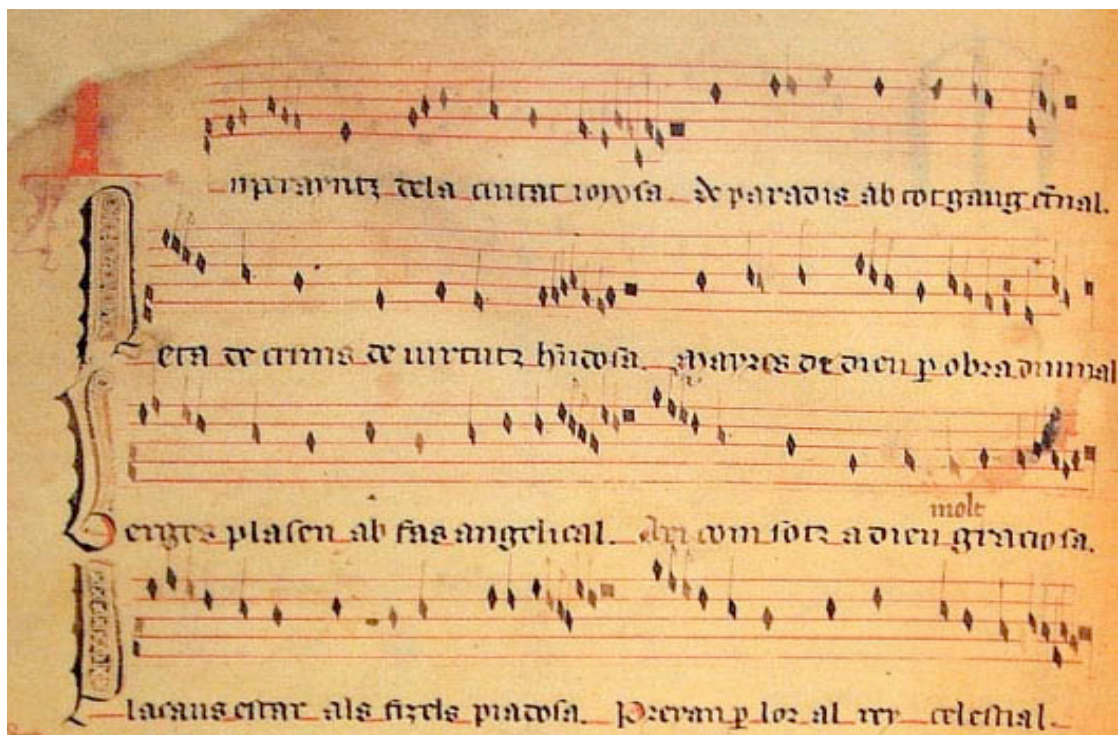 Inperayritz dela ciutat ioyosa. de paradis ab tot gaug et̃nal.
Neta de crims de uirtutz hñdosa. Mayres de dieu ꝑ obra diuinal
molt
Verges plasen ab fas angelical. Axi com sotz a dieu graciosa.
Placaus estar als fizels piadosa. Preyan ꝑ lor al rey celestial.